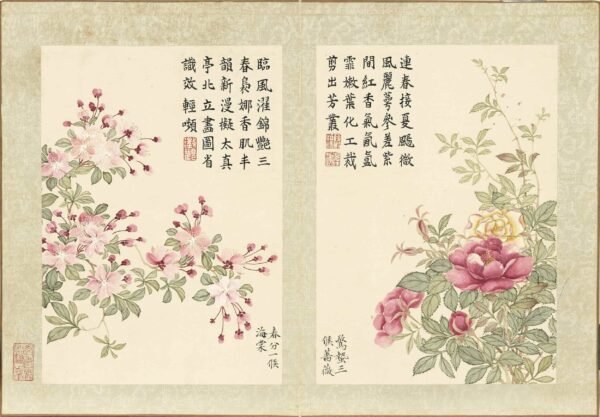 連春接夏颺微
風麗萼參差紫
間紅香氣氤氳
霏嫩葉化工裁
剪出芳叢
驚蟄三
候薔薇
臨風濯錦艷三
春裊娜香肌丰
韻新漫擬太真
亭北立畫圖省
識效輕嚬
春分一候
海棠